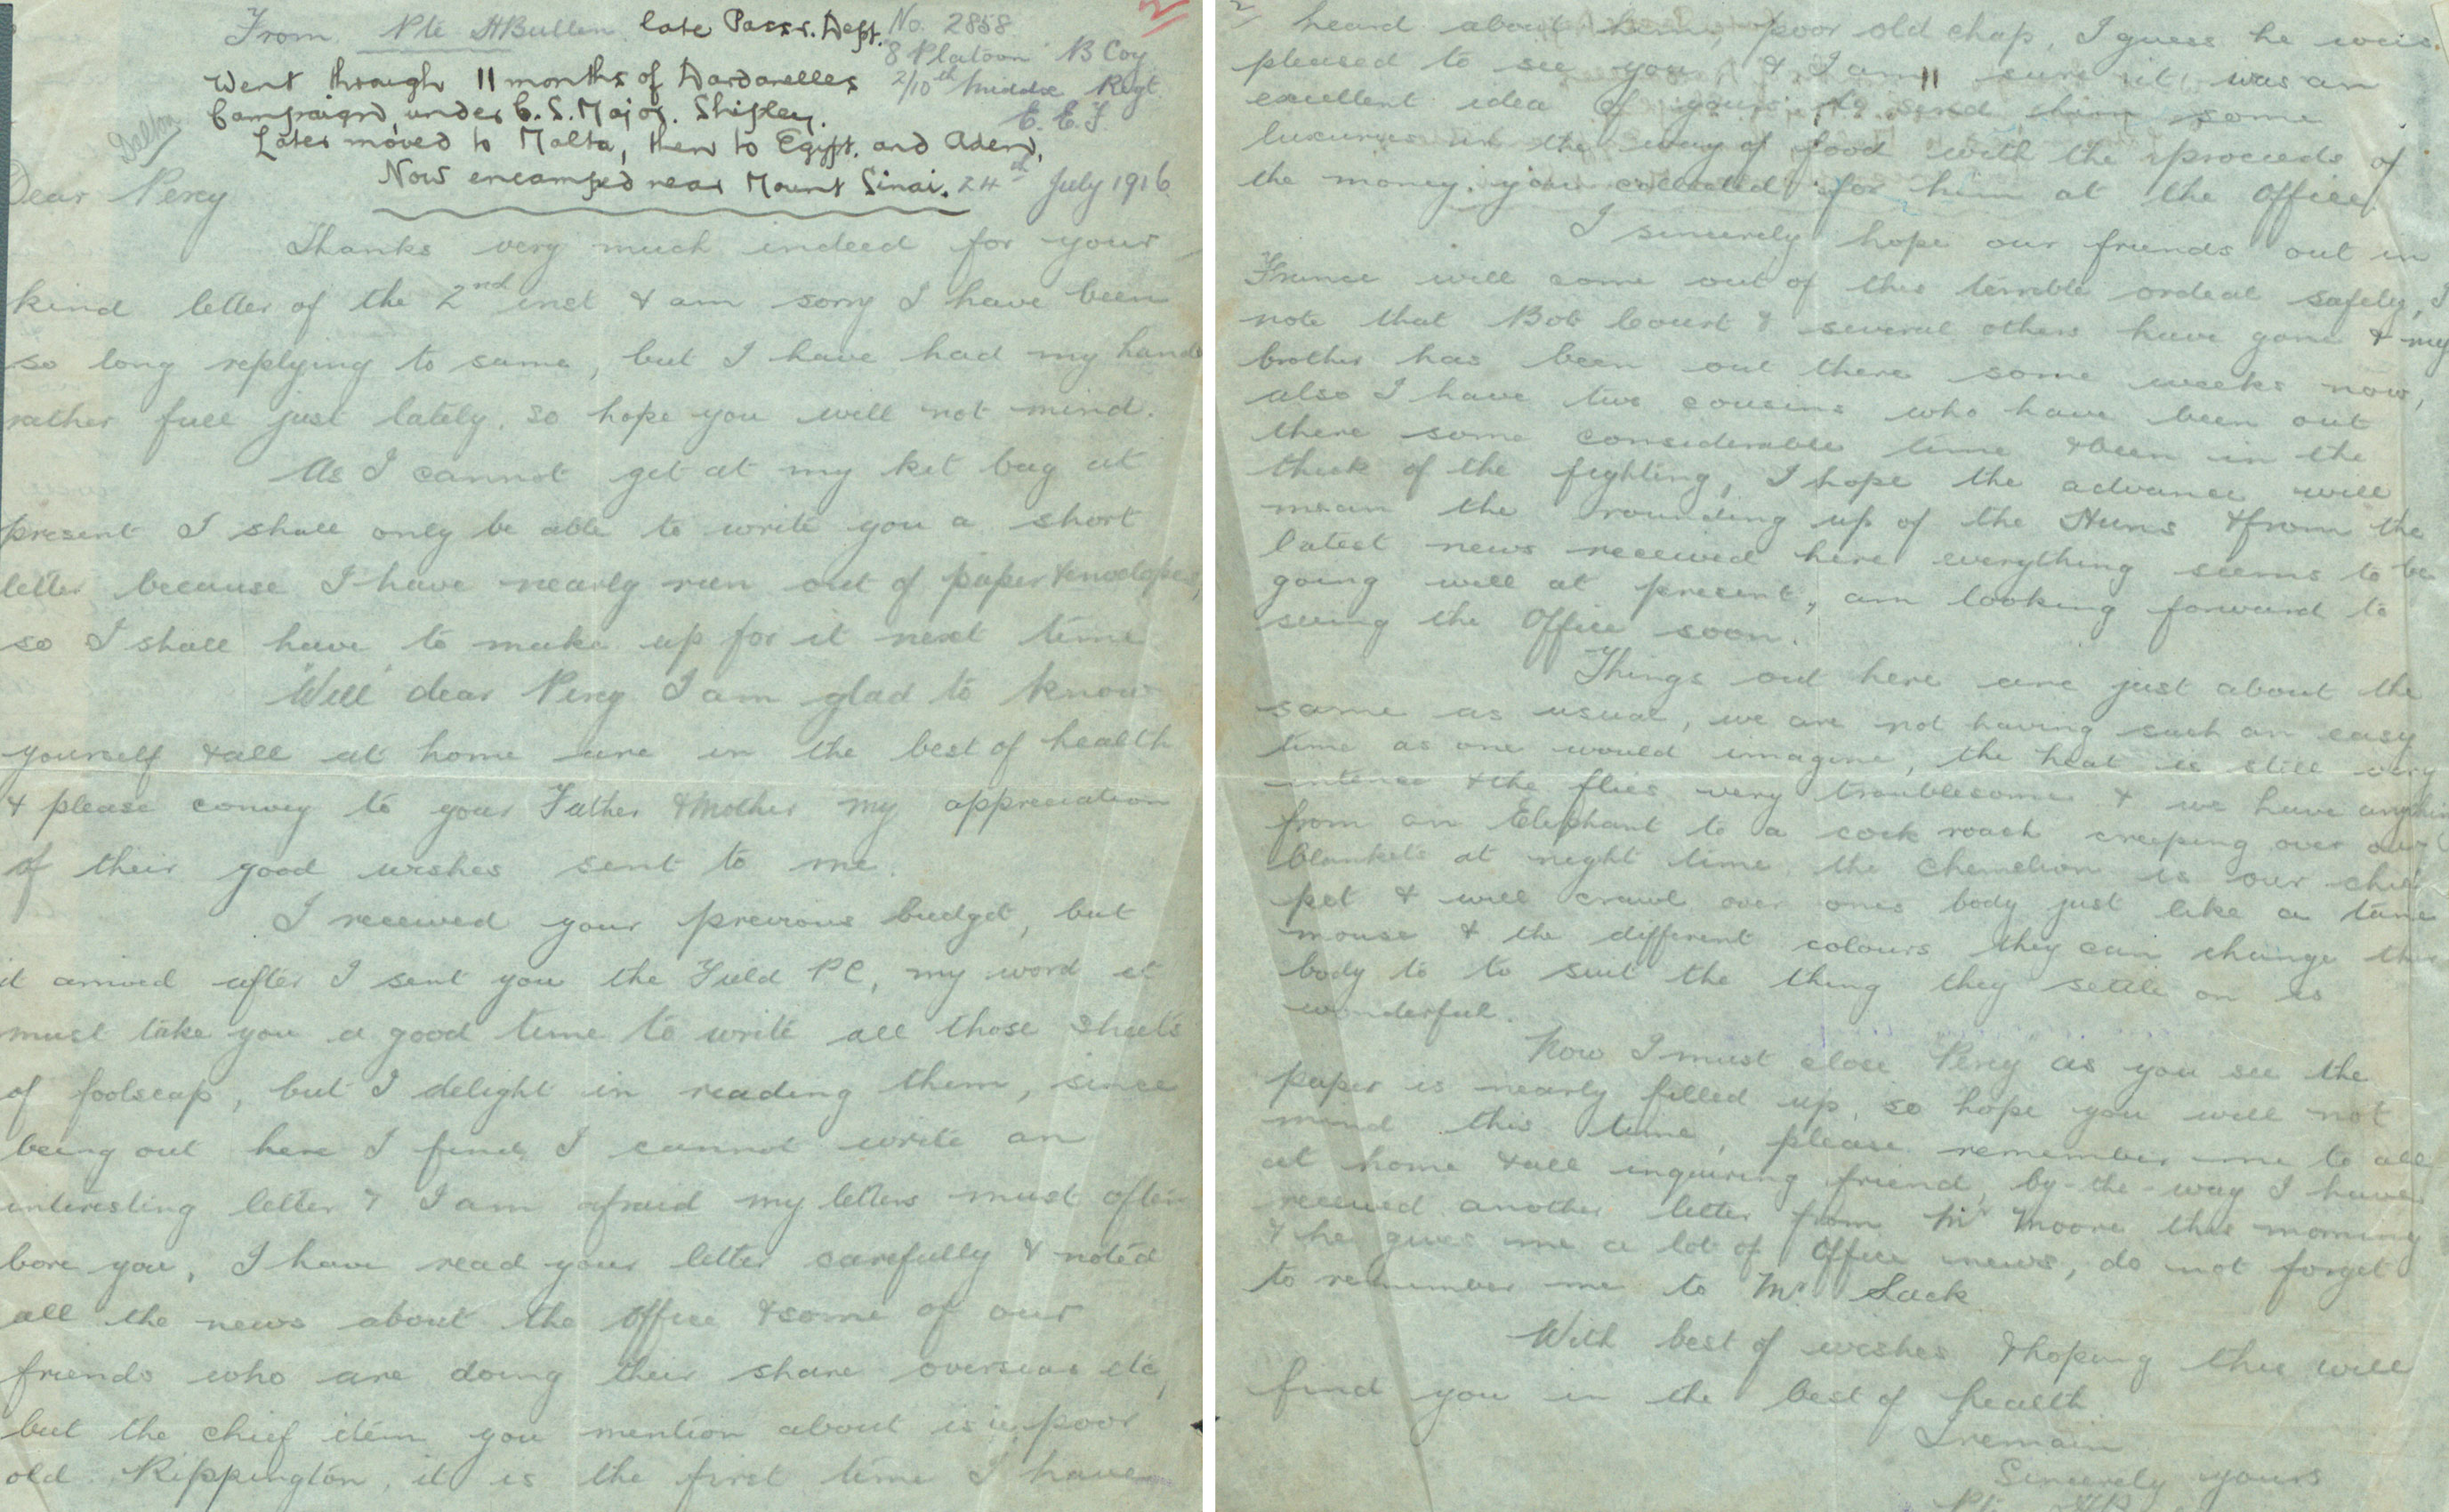 From Pte H Bullen. late Passr. Dept. No. 2858
8 Platoon B Coy
Went through 11 months of Dardanelles 2/10th Middx Regt
Campaign, under C. S. Major. Shipley. E. E. F.
Later moved to Malta, then to Egypt. and Aden,
Now encamped near Mount Sinai. 24th July 1916
Dear Percy
Thanks very much indeed for your
kind letter of the 2nd inst & am sorry I have been
so long replying to same, but I have had my hands
rather full just lately, so hope you will not mind.
As I cannot get at my kit bag at
present I shall only be able to write you a short
letter because I have nearly run out of paper & envelopes,
so I shall have to make up for it next time
"Well" dear Percy I am glad to know
yourself & all at home are in the best of health
& please convey to your Father & Mother my appreciation
of their good wishes sent to me.
I received your previous budget, but
it arrived after I sent you the Field P C, my word it
must take you a good time to write all those sheets
of foolscap, but I delight in reading them, since
being out here I find I cannot write an
interesting letter & I am afraid my letters must often
bore you, I have read your letter carefully & noted
all the news about the Office & some of our
friends who are doing their share overseas etc,
but the chief item you mention about is poor
old Kippington, it is the first time I have
2
heard about him, poor old chap, I guess he was
pleased to see you, & I am sure it was an
excellent idea of yours to send him some
luxuries in the way of food with the proceeds of
the money you collected for him at the Office.
I sincerely hope our friends out in
France will come out of this terrible ordeal safely, I
note that Bob Court & several others have gone & my
brother has been out there some weeks now,
also I have two cousins who have been out
there some considerable time & been in the
thick of the fighting, I hope the advance will
mean the rounding up of the Huns & from the
latest news received here everything seems to be
going well at present, am looking forward to
seeing the Office soon.
Things out here are just about the
same as usual, we are not having such an easy
time as one would imagine, the heat is still very
intense & the flies very troublesome & we have anything
from an Elephant to a cock roach creeping over our
blankets at night time, the Chamelion is our chief
pet & will crawl over ones body just like a tame
mouse & the different colours they can change their
body to to suit the thing they settle on is
wonderful.
Now I must close "Percy" as you see the
paper is nearly filled up, so hope you will not
mind this time, please remember me to all
at home & all inquiring friend, by-the-way I have
received another letter from Mr Moore this morning
& he gives me a lot of Office news, do not forget
to remember me to Mr. Sack
With best of wishes & hoping this will
find you in the best of health
I remain
Sincerely yours